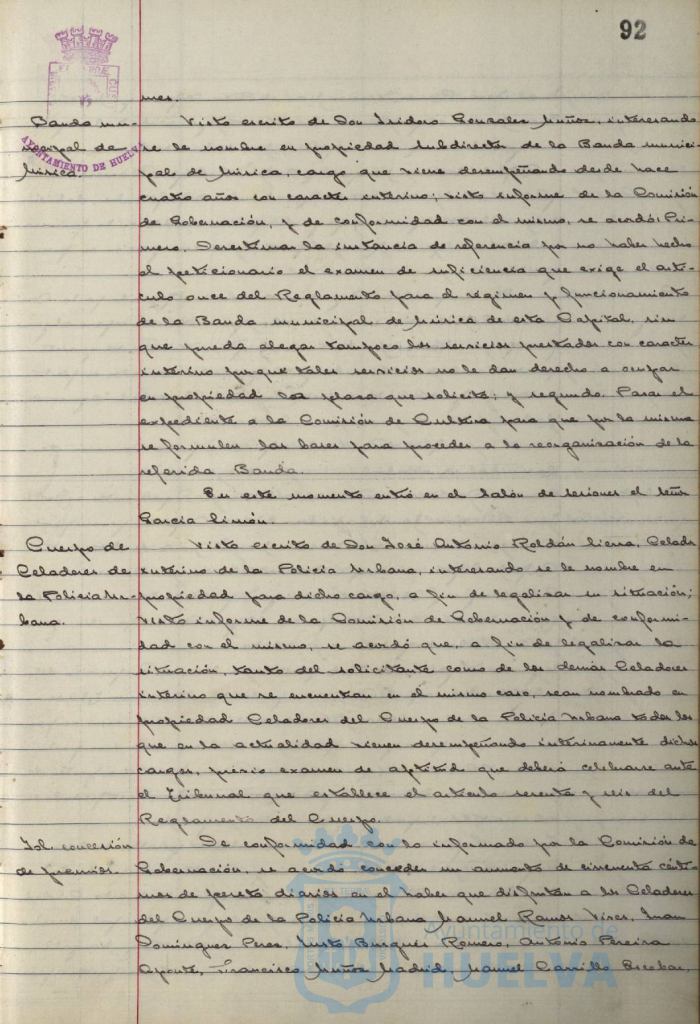 92
AYUNTAMIENTO DE HUELVA
mes.
Banda mu-
nicipal de
Música.
Visto escrito de Don Isidoro Gonzalez Muñoz, interesando
se le nombre en propiedad Subdirector de la Banda munici-
pal de Música, cargo que viene desempeñando desde hace
cuatro años con caracter interino; visto informe de la Comisión
de Gobernación, y de conformidad con el mismo, se acordó: Pri-
mero. Desestimar la instancia de referencia por no haber hecho
el peticionario el examen de suficiencia que exige el artí-
culo once del Reglamento para el régimen y funcionamiento
de la Banda municipal de Música de esta Capital, sin
que pueda alegar tampoco los servicios prestados con caracter
interino porque tales servicios no le dan derecho a ocupar
en propiedad la plaza que solicita; y segundo. Pasar el
expediente a la Comisión de Cultura para que por la misma
se formulen las bases para proceder a la reorganización de la
referida Banda.
En este momento entró en el Salón de sesiones el Señor
García Simón.
Cuerpo de
Celadores de
la Policía Ur-
bana.
Visto escrito de Don José Antonio Roldán Sierra, Celador
interino de la Policia Urbana, interesando se le nombre en
propiedad para dicho cargo, a fin de legalizar su situación;
visto informe de la Comisión de Gobernación y de conformi-
dad con el mismo, se acordó que, a fin de legalizar la
situación, tanto del solicitante como de los demás Celadores
interino que se encuentran en el mismo caso, sean nombrado en
propiedad Celadores del Cuerpo de la Policia Urbana todos los
que en la actualidad vienen desempeñando interinamente dichos
cargos, previo examen de aptitud que deberá celebrarse ante
el Tribunal que establece el artículo sesenta y seis del
Reglamento del Cuerpo.
Id. concesión
de premios.
De conformidad con lo informado por la Comisión de
Gobernación, se acordó conceder un aumento de cincuenta cénti-
mos de peseta diarios en el haber que disfrutan a los Celadores
del Cuerpo de la Policia Urbana Manuel Ramos Vives, Juan
Dominguez Perez, Justo Burgués Romero, Antonio Pereira
Aponte, Francisco Muñoz Madrid, Manuel Carrillo Escobar,
Ayuntamiento de
HUELVA